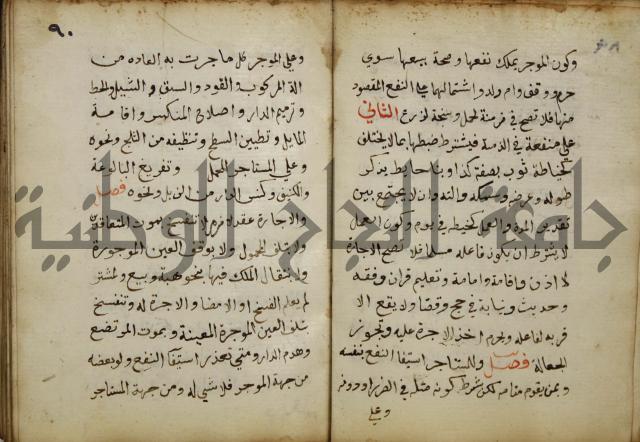 وكون المؤجر يملك نفعها وصحة بيعها سوى
حر ووقف وام ولد واشتمالها على النفع المقصود
منها فلا تصح في زمنة لحمل وسبخة لزرع الثاني
على منفعة في الذمة فيشترط ضبطها بما لا يختلف
كخياطة ثوب بصفة كذا وبنا حايط يذكر
طوله وعرضه وسمكه والته وان لا يجمع بين
تقدير المدة والعمل كخيطه في يوم وكون العمل
لا يشترط ان يكون فاعله مسلما فلا تصح الاجارة
لاذان واقامة وامامة وتعليم قران وفقه
وحديث ونيابة في حج وقضا ولا يقع الا
قربه لفاعله ويحرم اخذ الاجرة عليه وتجوز
الجعالة فصل وللمستاجر استيفا النفع بنفسه
وبمن يقوم مقامه لكن شرط كونه مثله في الضرر او دونه
وعلى
٩٠
وعلى المؤجر كل ما جرت به العادة من
الة المركوب والقود والسوق والشيل والحط
وترميم الدار واصلاح المنكسر واقامة
المايل وتطيين السطح وتنظيفه من الثلج ونحوه
وعلى المستاجر المحمل وتفريغ البالوعة
والكنيف وكنس الدار من الزبل ونحوه فصل
والاجارة عقد لازم لا تنفسخ بموت المتعاقدين
ولا بتلف المحمول ولا بوقف العين المؤجرة
ولا بانتقال الملك فيها بنحو هبة وبيع ولمشتر
لم يعلم الفسخ او الامضا والاجرة له وتنفسخ
بتلف العين المؤجرة المعينة وبموت المرتضع
وهدم الدار ومتى تعذر استيفا النفع ولو بعضه
من جهة المؤجر فلا شي له ومن جهة المستاجر
جامعة النجاح الوطنية